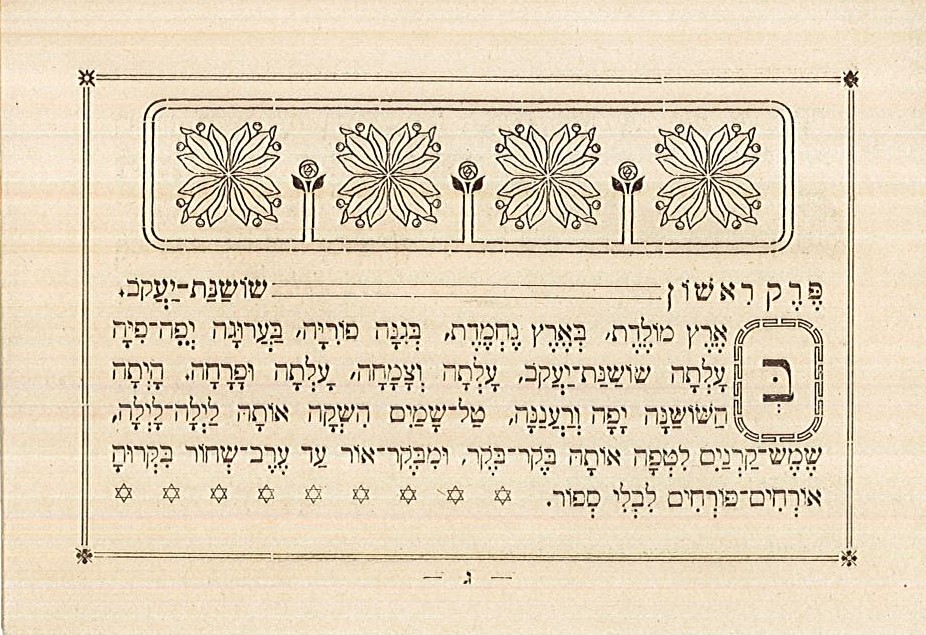 פֶּרֶק רִאשׁוֹן שׁוֹשַׁנַּת-יַעֲקֹב.
בְּאֶרֶץ מוֹלֶדֶת, בְּאֶרֶץ נֶחְמֶדֶת, בְּגִנָּה פוֹרִיָּה, בַּעֲרוּגָה יְפֵה-פִיָּה
עָלְתָה שׁוֹשַׁנַּת-יַעֲקֹב, עָלְתָה וְצָמְחָה, עָלְתָה וּפָרְחָה. הָיְתָה
הַשּׁוֹשַׁנָּה יָפָה וְרַעֲנַנָּה, טַל-שָׁמַיִם הִשְׁקָה אוֹתָהּ לַיְלָה-לַיְלָה,
שֶׁמֶשׁ-קַרְנַיִם לִטְּפָה אוֹתָהּ בֹּקֶר-בֹּקֶר, וּמִבֹּקֶר-אוֹר עַד עֶרֶב-שְׁחוֹר בִּקְּרוּהָ
אוֹרְחִים-פּוֹרְחִים לִבְלִי סְפוֹר. ✡ ✡ ✡ ✡ ✡ ✡ ✡ ✡ ✡
— ג —